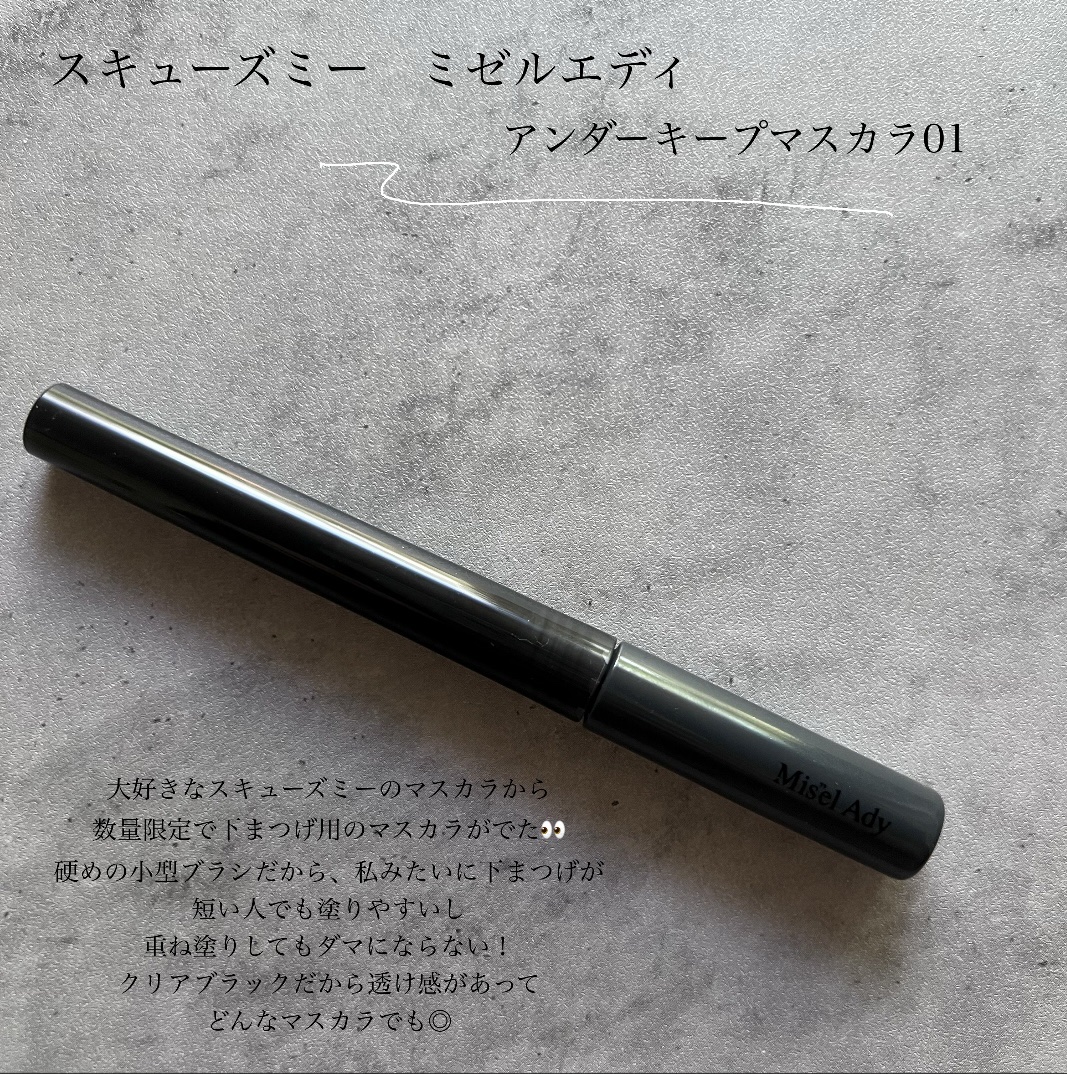 スキューズミー　ミゼルエディ
アンダーキープマスカラ01
Misel Ady
大好きなスキューズミーのマスカラから
数量限定で下まつげ用のマスカラがでた👀
硬めの小型ブラシだから、私みたいに下まつげが
短い人でも塗りやすいし
重ね塗りしてもダマにならない！
クリアブラックだから透け感があって
どんなマスカラでも◎